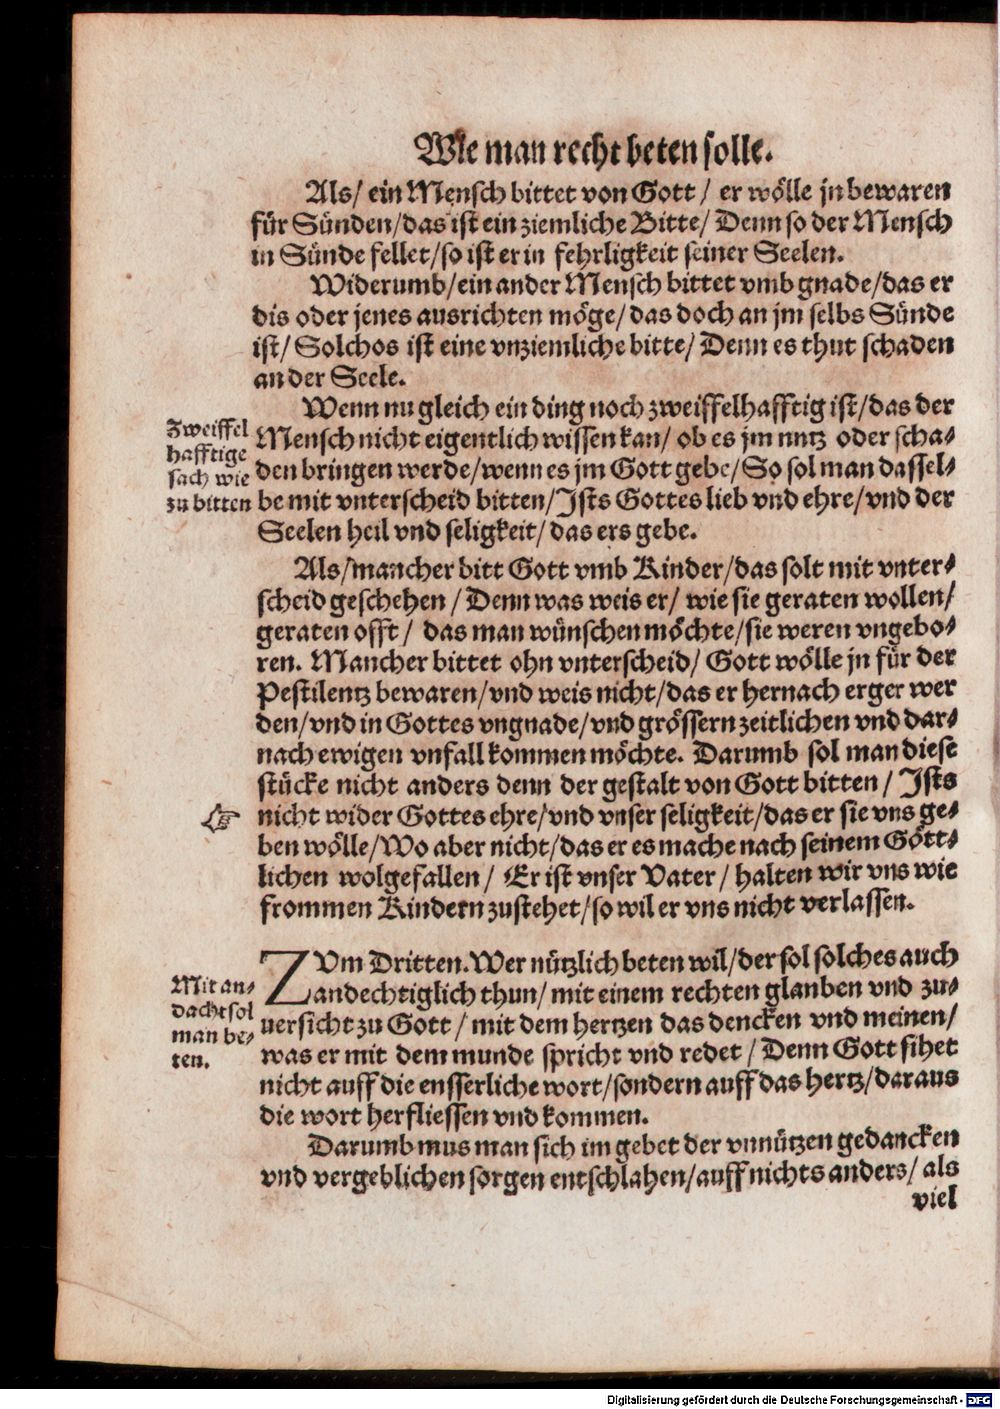 WIe man recht beten solle.
Als/ ein Mensch bittet von Gott/ er wölle jn bewaren
für Sünden/das ist ein ziemliche Bitte/ Denn so der Mensch
in Sünde fellet/so ist er in fehrligkeit seiner Seelen.
Widerumb/ein ander Mensch bittet vmb gnade/das er
dis oder jenes ausrichten möge/ das doch an jm selbs Sünde
ist/ Solchos ist eine vnziemliche bitte/ Denn es thut schaden
an der Seele.
Wenn nu gleich ein ding noch zweiffelhafftig ist/das der
Mensch nicht eigentlich wissen kan/ ob es jm nutz oder scha⸗
den bringen werde/wenn es jm Gott gebe/So sol man dassel⸗
be mit vnterscheid bitten/Ists Gottes lieb vnd ehre/vnd der
Seelen heil vnd seligkeit/das ers gebe.
Zweiffel
hafftige
sach wie
zu bitten
Als/mancher bitt Gott vmb Kinder/das solt mit vnter⸗
scheid geschehen/Denn was weis er/ wie sie geraten wollen/
geraten offt/ das man wünschen möchte/sie weren vngebo⸗
ren. Mancher bittet ohn vnterscheid/ Gott wölle jn für der
Pestilentz bewaren/vnd weis nicht/das er hernach erger wer
den/vnd in Gottes vngnade/vnd grössern zeitlichen vnd dar⸗
nach ewigen vnfall kommen möchte. Darumb sol man diese
stücke nicht anders denn der gestalt von Gott bitten/ Ists
☞ nicht wider Gottes ehre/vnd vnser seligkeit/das er sie vns ge⸗
ben wölle/Wo aber nicht/das er es mache nach seinem Gött⸗
lichen wolgefallen/ Er ist vnser Vater/ halten wir vns wie
frommen Kindern zustehet/so wil er vns nicht verlassen.
ZVm Dritten. Wer nützlich beten wil/der sol solches auch
andechtiglich thun/ mit einem rechten glauben vnd zu⸗
uersicht zu Gott/ mit dem hertzen das dencken vnd meinen/
was er mit dem munde spricht vnd redet/ Denn Gott sihet
nicht auff die eusserliche wort/sondern auff das hertz/daraus
die wort herfliessen vnd kommen.
Mit an⸗
dacht sol
man be⸗
ten.
Darumb mus man sich im gebet der vnnützen gedancken
vnd vergeblichen sorgen entschlahen/auff nichts anders/ als
viel
Digitalisierung gefördert durch die Deutsche Forschungsgemeinschaft - DFG